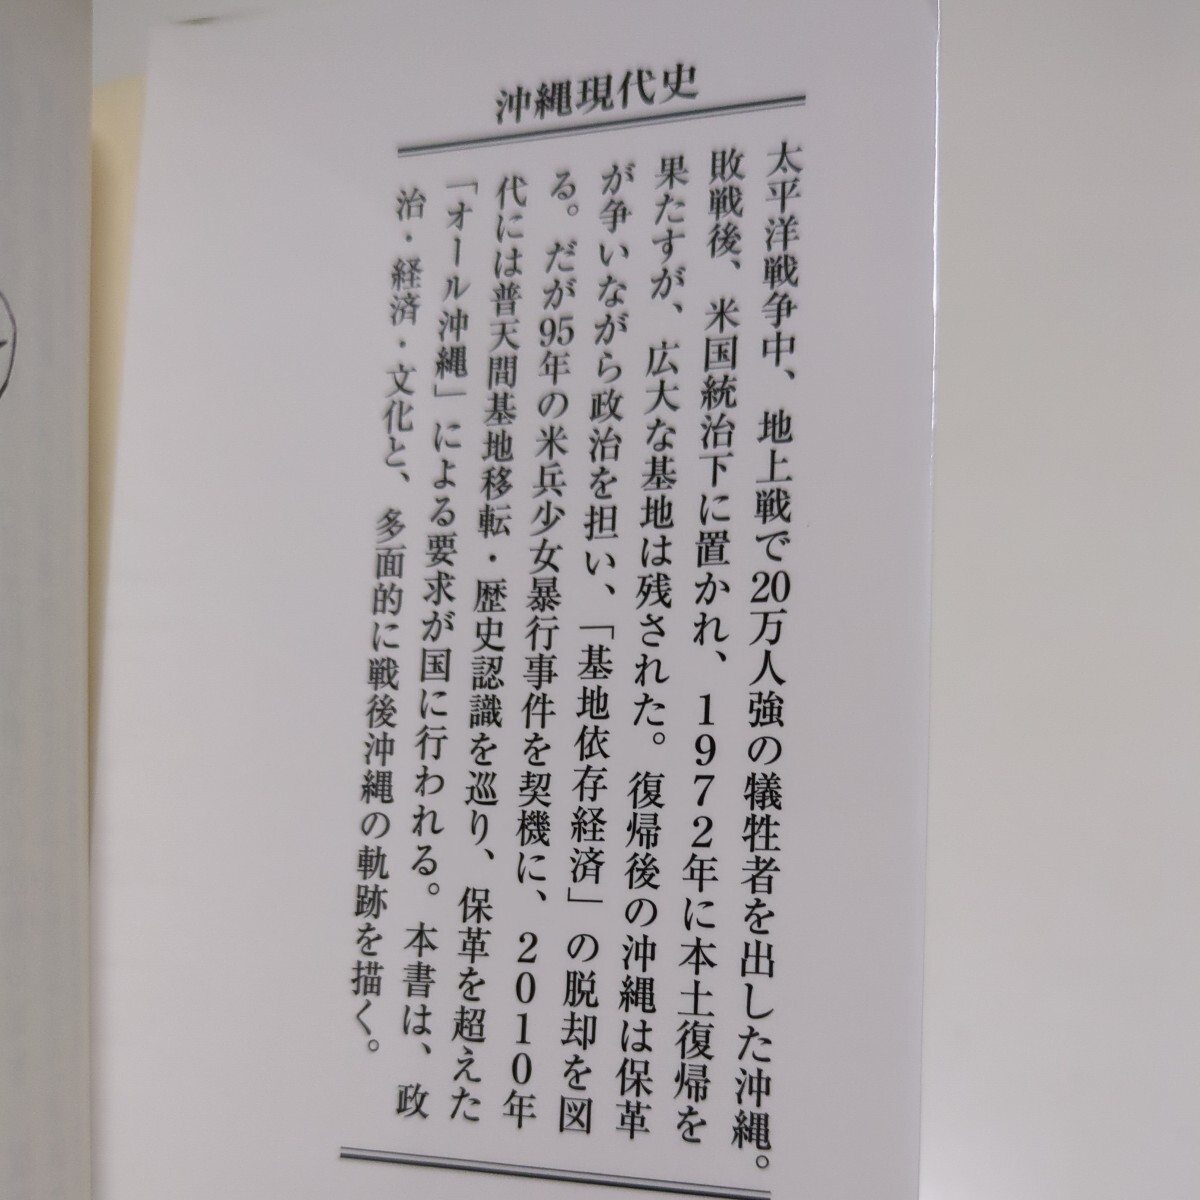 沖縄現代史
太平洋戦争中、地上戦で20万人強の犠牲者を出した沖縄。
敗戦後、米国統治下に置かれ、1972年に本土復帰を
果たすが、広大な基地は残された。復帰後の沖縄は保革
が争いながら政治を担い、「基地依存経済」の脱却を図
る。だが95年の米兵少女暴行事件を契機に、2010年
代には普天間基地移転・歴史認識を巡り、保革を超えた
「オール沖縄」による要求が国に行われる。本書は、政
治・経済・文化と、多面的に戦後沖縄の軌跡を描く。